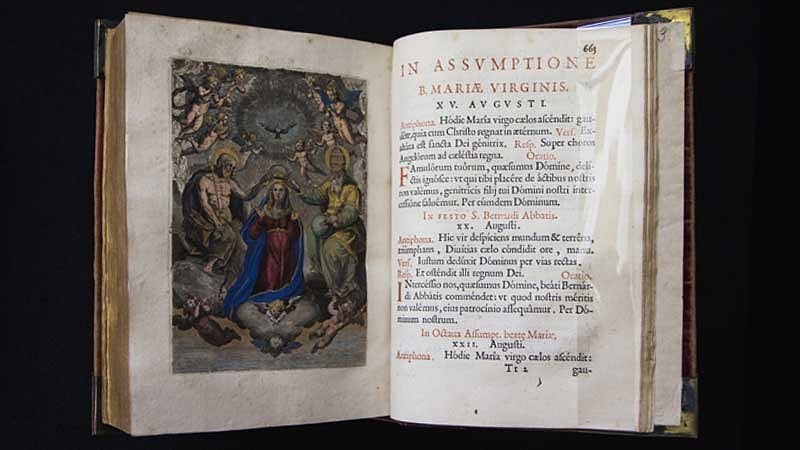 3
663
IN ASSVMPTIONE
B. MARIÆ VIRGINIS.
XV. AVGVSTI.
Antiphona. Hódie María virgo cælos ascéndit: gau-
déte, quia cum Christo regnat in ætérnum. Vers. Ex-
altáta est sancta Dei génitrix. Resp. Super choros
Angelórum ad cæléstia regna. Orátio.
Famulórum tuórum, quæsumus Dómine, delí-
ctis ignósce: vt qui tibi placére de áctibus nostris
non valémus, genitrícis fílij tui Dómini nostri inter-
cessióne saluémur. Per eúmdem Dóminum.
IN FESTO S. Bernardi Abbatis.
XX. Augusti.
Antiphona. Hic vir despíciens mundum & terréna,
triúmphans, Diuítias cælo cóndidit ore, manu.
Vers. Iustum dedúxit Dóminus per vias rectas.
Resp. Et osténdit illi regnum Dei. Orátio.
Intercéssio nos, quæsumus Dómine, beáti Bernár-
di Abbátis comméndet: vt quod nostris méritis
non valémus, eius patrocínio assequámur. Per Dó-
minum nostrum.
In Octaua Assumpt. beatæ Mariæ,
XXII. Augusti.
Antiphona. Hódie María virgo cælos ascéndit:
Tt 2 gau-